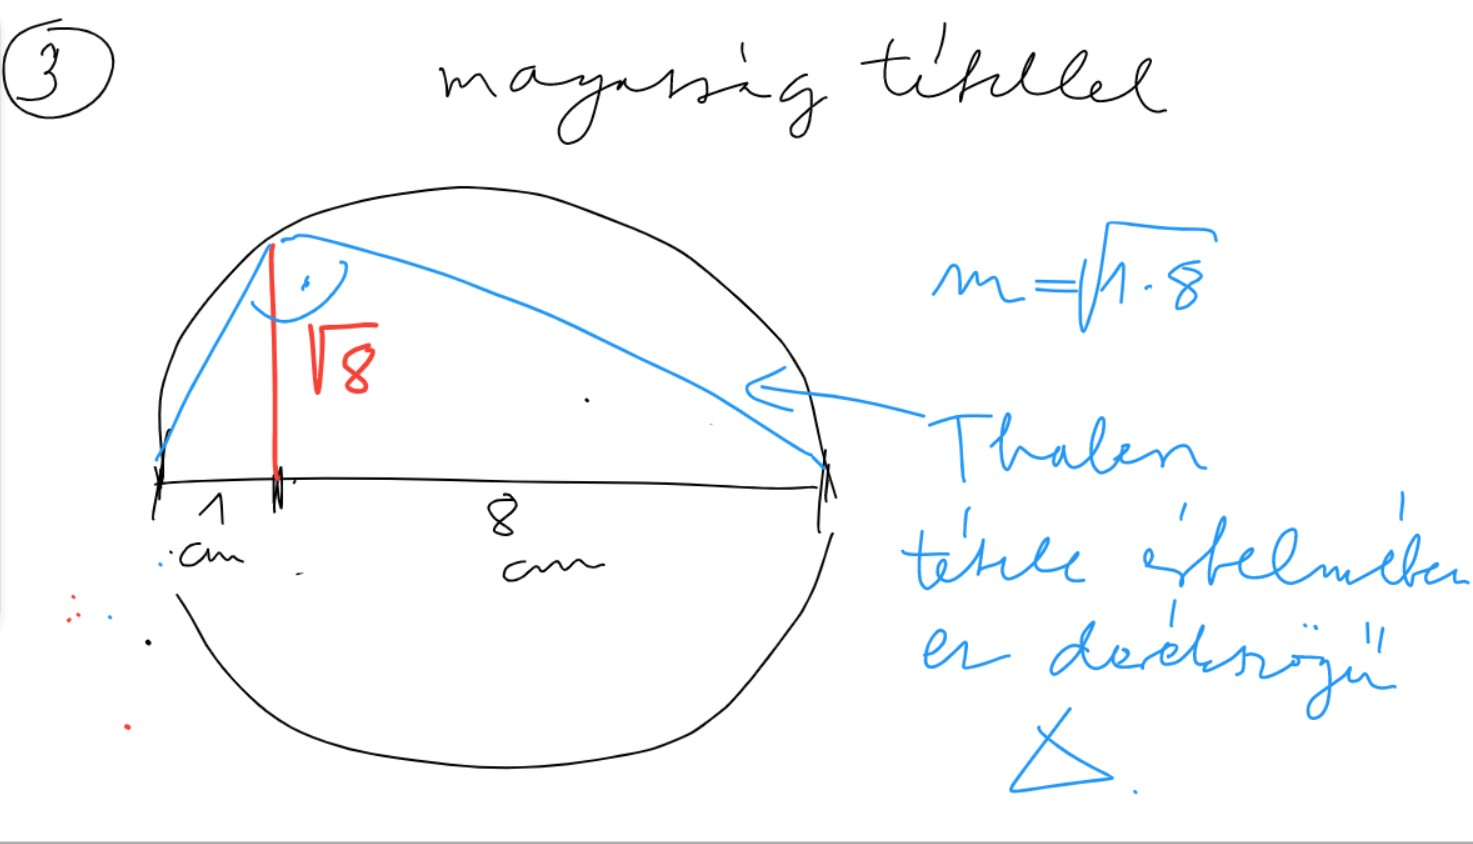 3
magasság tétellel
m = √1·8
√8
Thalesz
1
8
tétele értelmében
cm
cm
ez derékszögű
Δ.